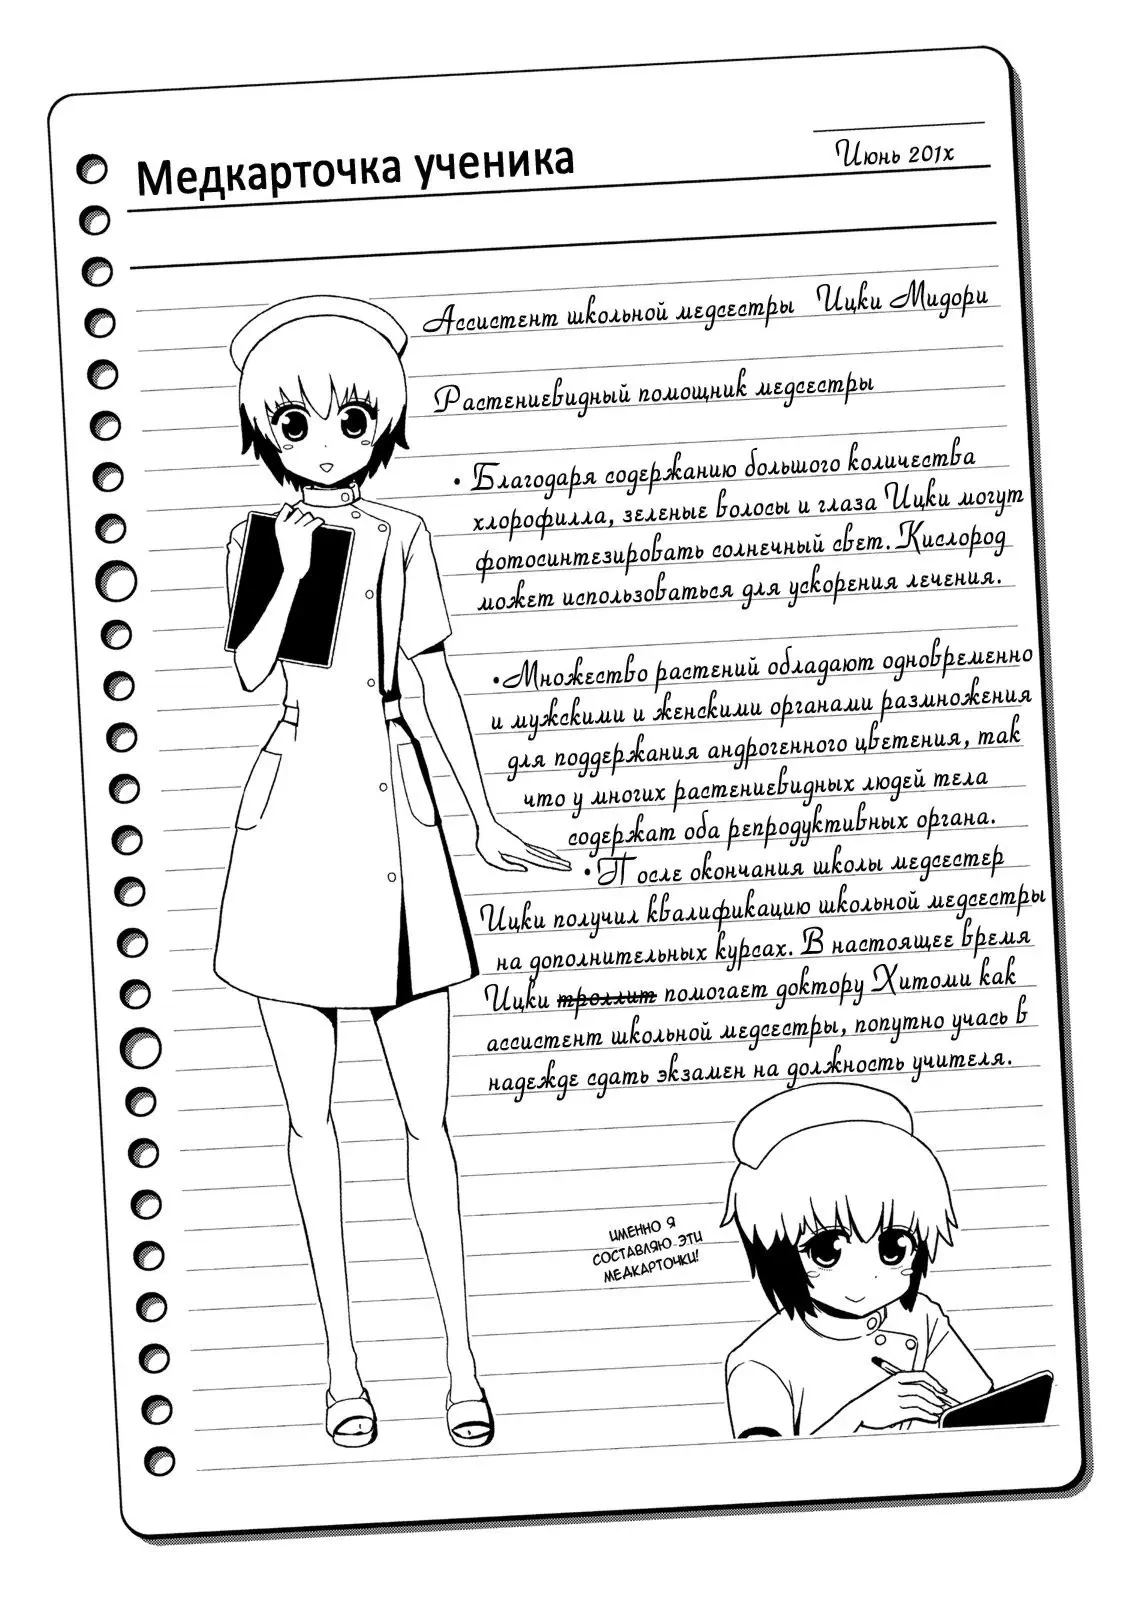 Медкарточка ученика
Июнь 201х
Ассистент школьной медсестры Ицки Мидори
Растениевидный помощник медсестры
• Благодаря содержанию большого количества
хлорофилла, зеленые волосы и глаза Ицки могут
фотосинтезировать солнечный свет. Кислород
может использоваться для ускорения лечения.
• Множество растений обладают одновременно
и мужскими и женскими органами размножения
для поддержания андрогенного цветения, так
что у многих растениевидных людей тела
содержат оба репродуктивных органа.
• После окончания школы медсестер
Ицки получил квалификацию школьной медсестры
на дополнительных курсах. В настоящее время
Ицки троллит помогает доктору Хитоми как
ассистент школьной медсестры, попутно учась в
надежде сдать экзамен на должность учителя.
ИМЕННО Я
СОСТАВЛЯЮ ЭТИ
МЕДКАРТОЧКИ!